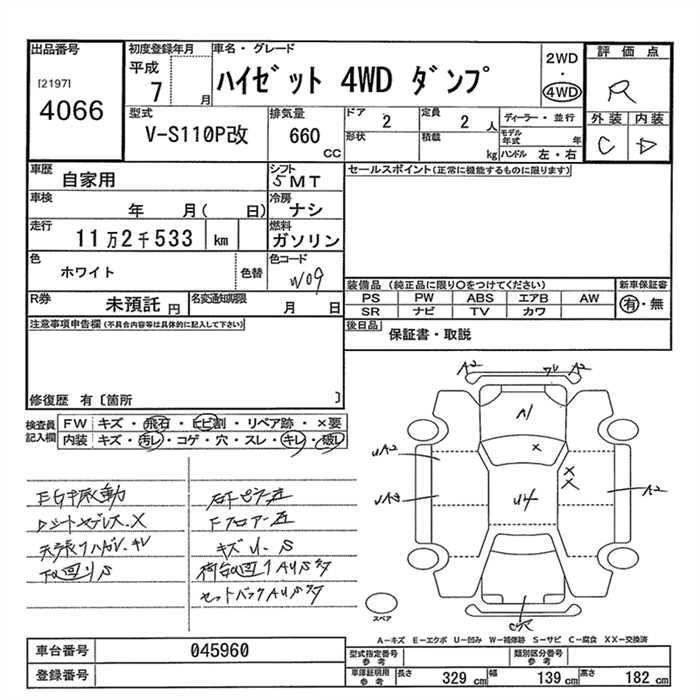 出品番号
[2197]
4066
初度登録年月
平成
7
月
車名・グレード
ハイゼット 4WD ダンプ
2WD
・
4WD
評価点
R
外装 内装
C D
型式
V-S110P改
排気量
660
CC
ドア
2
定員
2 人
形状
積載
kg
ディーラー・並行
モデル年式 年
ハンドル 左・右
車歴
自家用
シフト
5MT
車検
年 月( 日)
冷房
ナシ
走行
11万2千533 km
燃料
ガソリン
色
ホワイト
色替
色コード
W09
R券
未預託 円
名変通知期限
月 日
セールスポイント(正常に機能するものに限ります)
装備品 (純正品に限り○をつけてください)
新車保証書
PS PW ABS エアB AW
有・無
SR ナビ TV カワ
後日品
保証書・取説
注意事項申告欄(不具合内容等は具体的に記入して下さい)
修復歴 有〔箇所 〕
検査員
記入欄
FW キズ・飛石・ヒビ割・リペア跡・×要
内装 キズ・汚レ・コゲ・穴・スレ・キレ・破レ
キズ U. S
A2
A2
A1
×
UA2
UA3
×
×
U4
A2
スペア
A-キズ E-エクボ U-凹み W-補修跡 S-サビ C-腐食 XX-交換済
車台番号
045960
登録番号
型式指定番号
参考
類別区分番号
参考
車庫証明用
参考
長さ 329 cm 幅 139 cm 高さ 182 cm